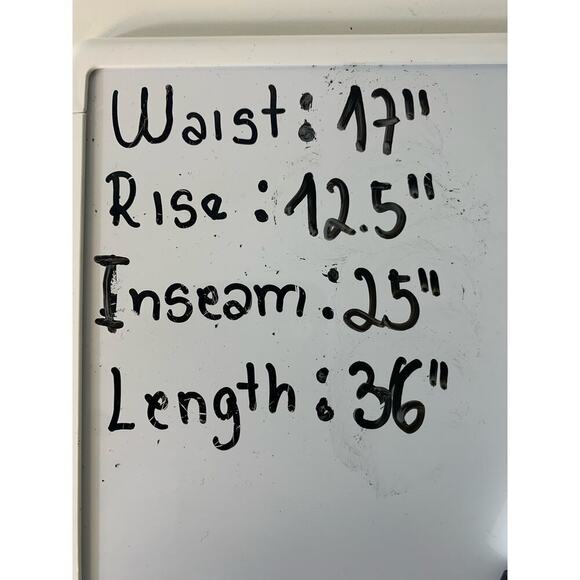 Waist: 17"
Rise: 12.5"
Inseam: 25"
Length: 36"